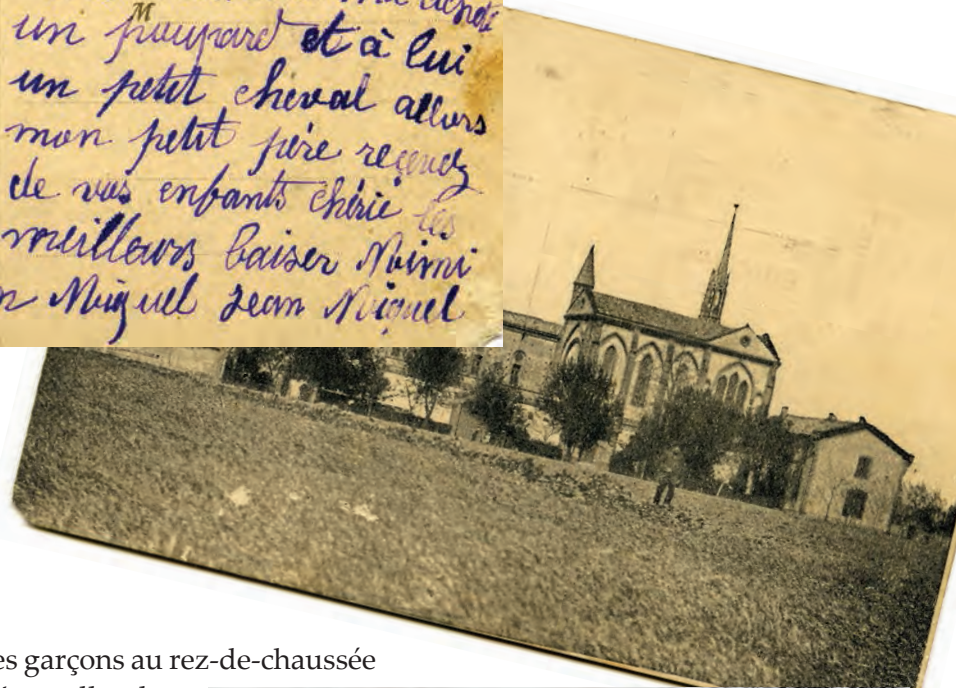 M
un poupard et à lui
un petit cheval allors
mon petit père recevez
de vos enfants chérie les
meillours baiser Noimi
Miguel Jean Miguel
es garçons au rez-de-chaussée